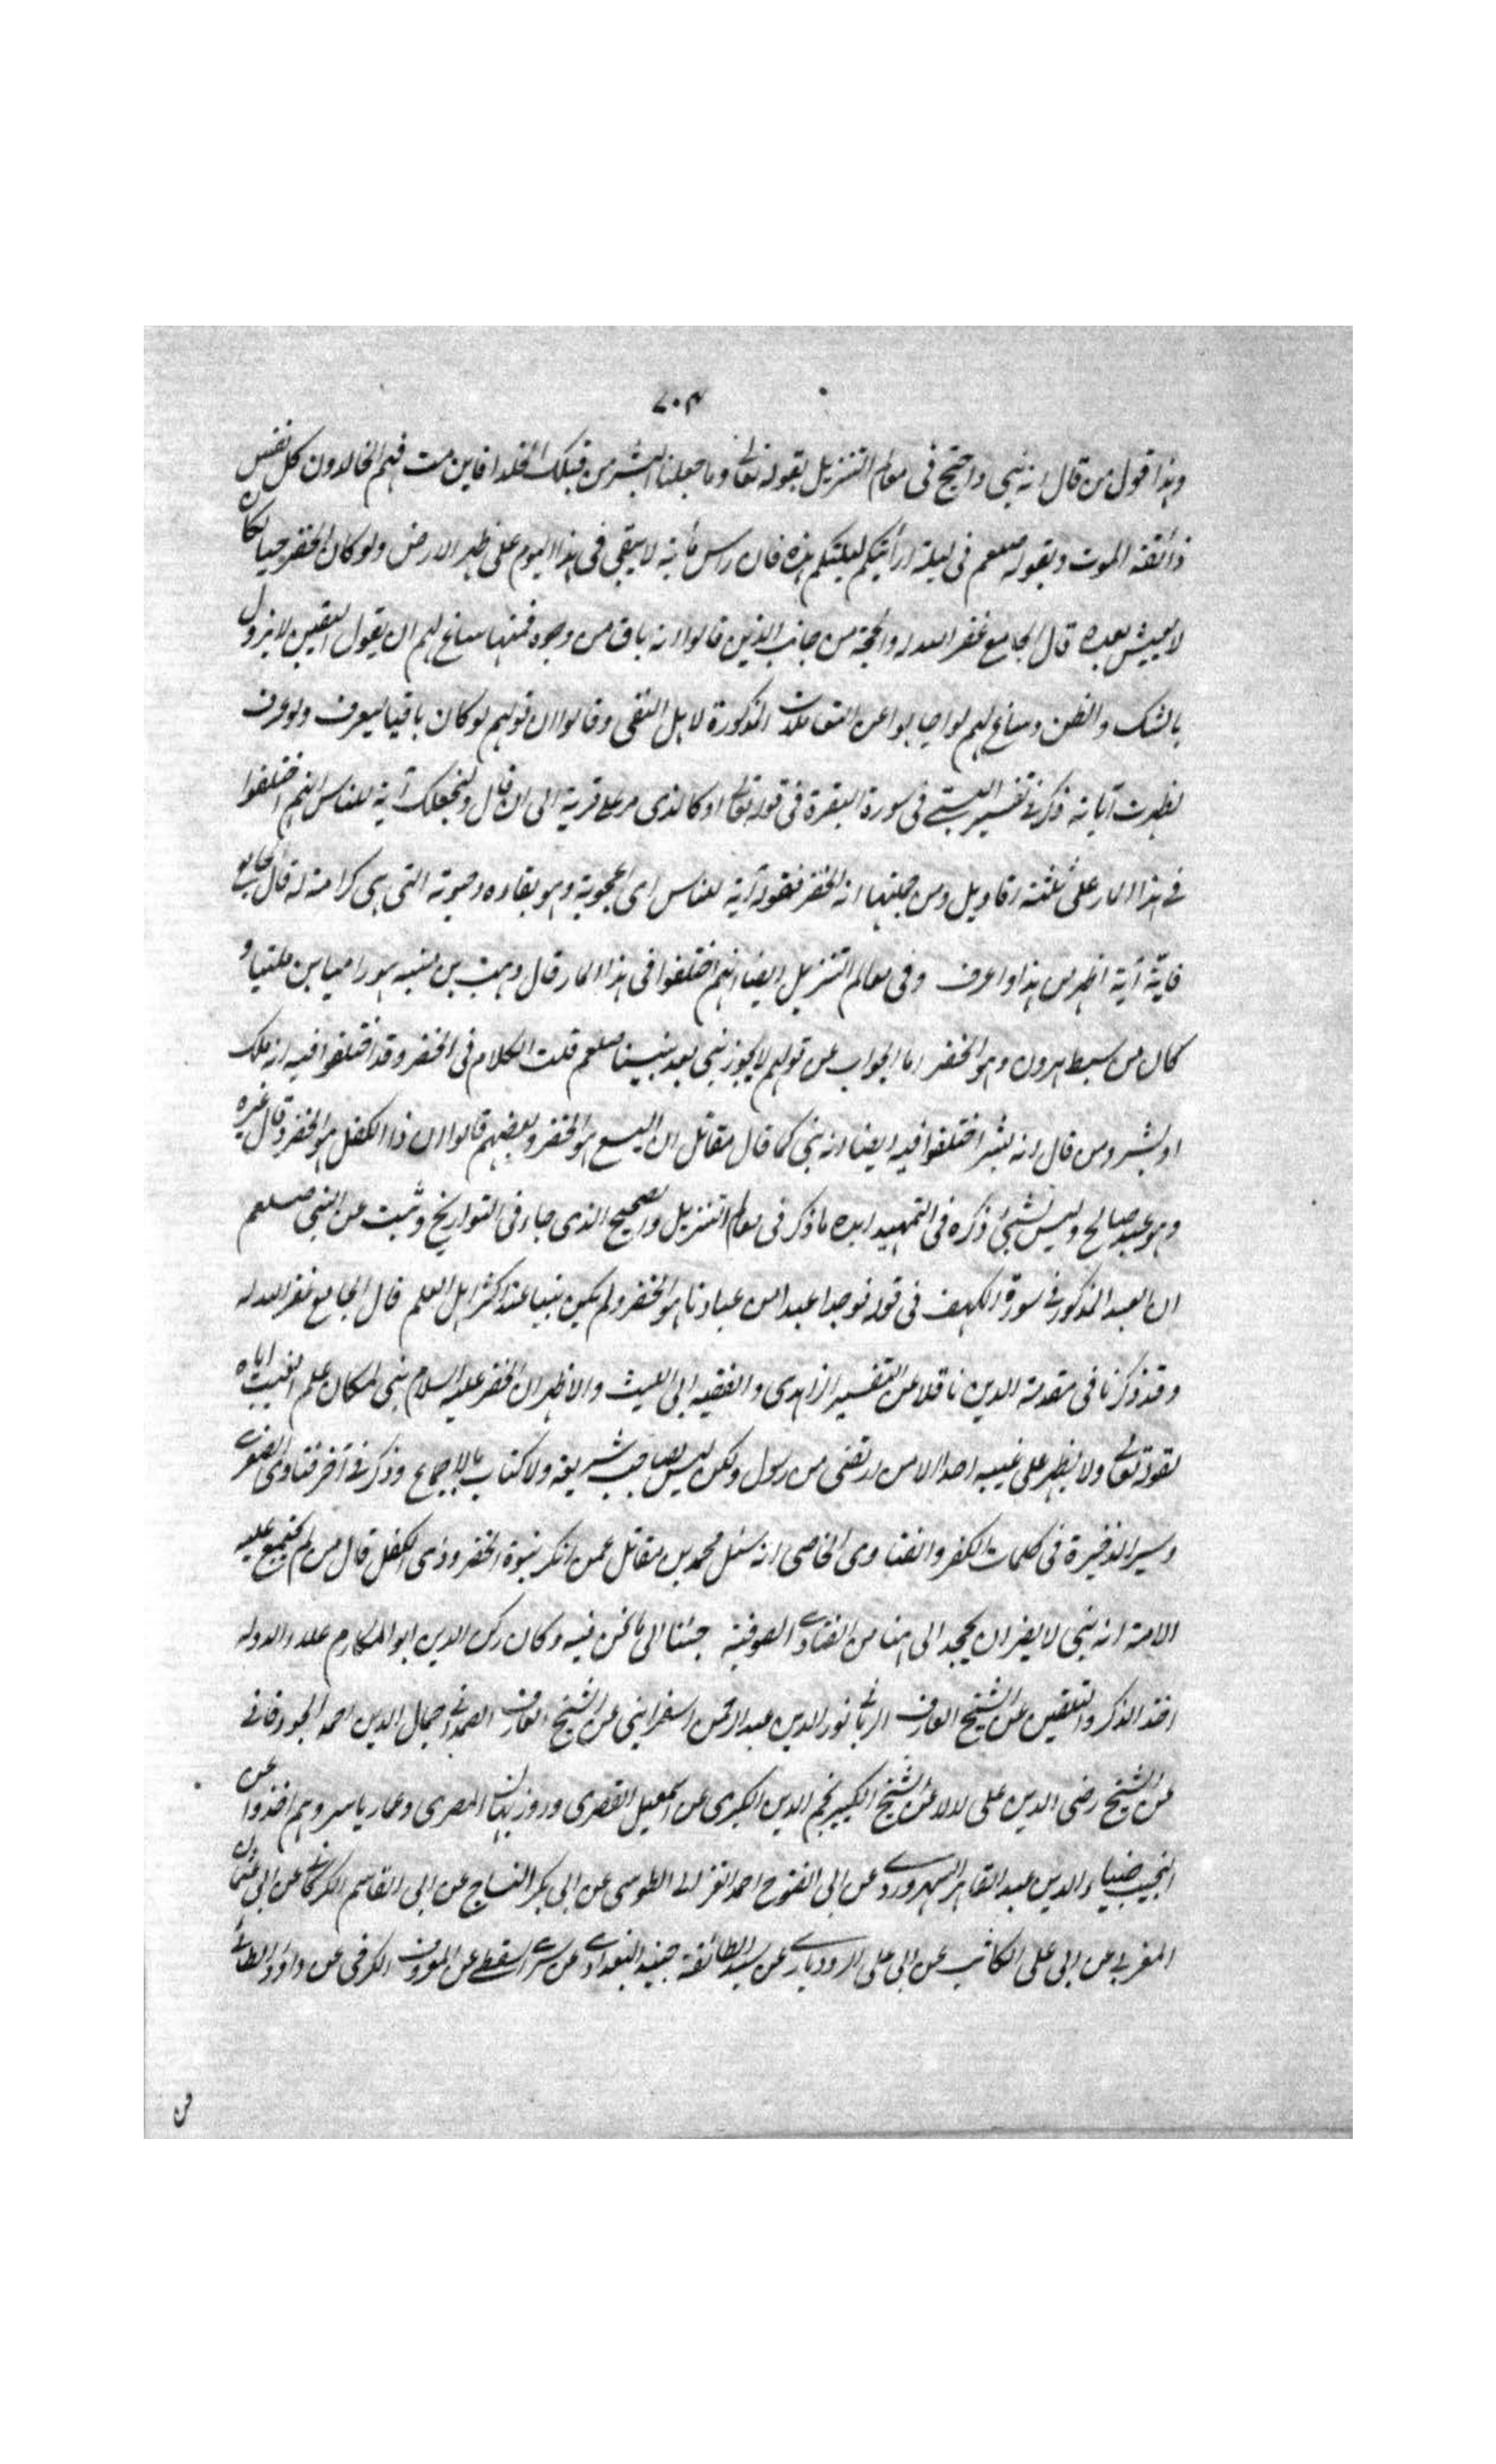 ٧٠٣
وهذا قول من قال انه نبي واحتج في معالم التنزيل بقوله تعالى وما جعلنا لبشر من قبلك الخلد افاين مت فهم الخالدون كل نفس
ذائقة الموت وبقوله صلعم في ليلة ارأيتكم ليلتكم هذه فان راس مأية لا يبقى في هذا اليوم على ظهر الارض ولو كان الخضر حيا لكان
لا يعيش بعده قال الجامع غفر الله له والحجة من جانب الذين قالوا انه باق من وجوه فمنها ساغ لهم ان يقول اليقين لا يزول
بالشك والظن وساغ لهم لو اجابوا عن المذكورة لاهل النفى وقالوا ان قولهم لو كان باقيا ليعرف ولو عرف
لظهرت آياته ذكر في تفسير في سورة البقرة في قوله تعالى او كالذى مر على قرية الى ان قال ولنجعلك آية للناس انهم اختلفوا
في هذا المار على ثلثة اقاويل ومن جملتها انه الخضر فقوله آية للناس اى اعجوبة وهو بقاؤه وحيوته التى هى كرامة له قال الجامع
فاية آية اظهر من هذا واعرف وفى معالم التنزيل ايضا انهم اختلفوا فى هذا المار قال وهب بن منبه هو ارميا بن حلقيا و
كان من سبط هرون وهو الخضر اما الجواب عن قولهم لا يجوز نبى بعد نبينا صلعم قلت الكلام فى الخضر وقد اختلفوا فيه انه ملك
او بشر ومن قال انه بشر اختلفوا فيه ايضا انه نبى كما قال مقاتل ان اليسع هو الخضر وبعضهم قالوا ان ذا الكفل هو الخضر وقال غيره
وهو عبد صالح وليس بشئ ذكره فى التمهيد ايده ما ذكر فى معالم التنزيل والصحيح الذى جاء فى التواريخ وثبت عن النبى صلعم
ان العبد المذكور في سورة الكهف فى قوله فوجدا عبدا من عبادنا هو الخضر ولم يكن نبيا عند اكثر اهل العلم قال الجامع غفر الله له
وقد ذكرنا فى مقدمة الدين ناقلا عن التفسير الزاهدى والفقيه ابى الليث والاظهر ان الخضر عليه السلام نبى لمكان علم الغيب اياه
لقوله تعالى ولا يظهر على غيبه احدا الا من ارتضى من رسول ولكن ليس بصاحب شريعة ولا كتاب بالاجماع وذكر في آخر فتاوى الصغرى
وسير الذخيرة فى كلمات الكفر والفتاوى الخاصى انه سئل محمد بن مقاتل عمن انكر نبوة الخضر وذى الكفل قال من لم يجمع عليه
الامة انه نبى لا يضر ان يجحد الى هنا من الفتاوى الصوفية جئنا الى ما نحن فيه وكان ركن الدين ابو المكارم علاء الدوله
اخذ الذكر والتلقين عن الشيخ العارف الربانى نور الدين عبد الرحمن اسفراينى عن الشيخ العارف الصمدانى جمال الدين احمد الجورفانى
عن الشيخ رضى الدين على لالا عن الشيخ الكبير نجم الدين الكبرى عن اسمعيل القصرى وروزبهان المصرى وعمار ياسر وهم اخذوا عن
النجيب ضياء الدين عبد القاهر السهروردى عن ابى الفتوح احمد الغزالى الطوسى عن ابى بكر النساج عن ابى القاسم الكركانى عن ابى عثمان
المغربى عن ابى على الكاتب عن ابى على الرودبارى عن سيد الطائفة جنيد البغدادى عن سرى السقطى عن المعروف الكرخى عن داؤد الطائى
من